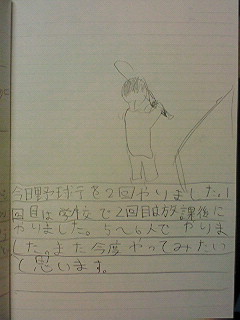 今日野球を2回やりました。1
回目は学校で2回目は放課後に
やりました。5〜6人でやりま
した。また今度やってみたい
て思います。